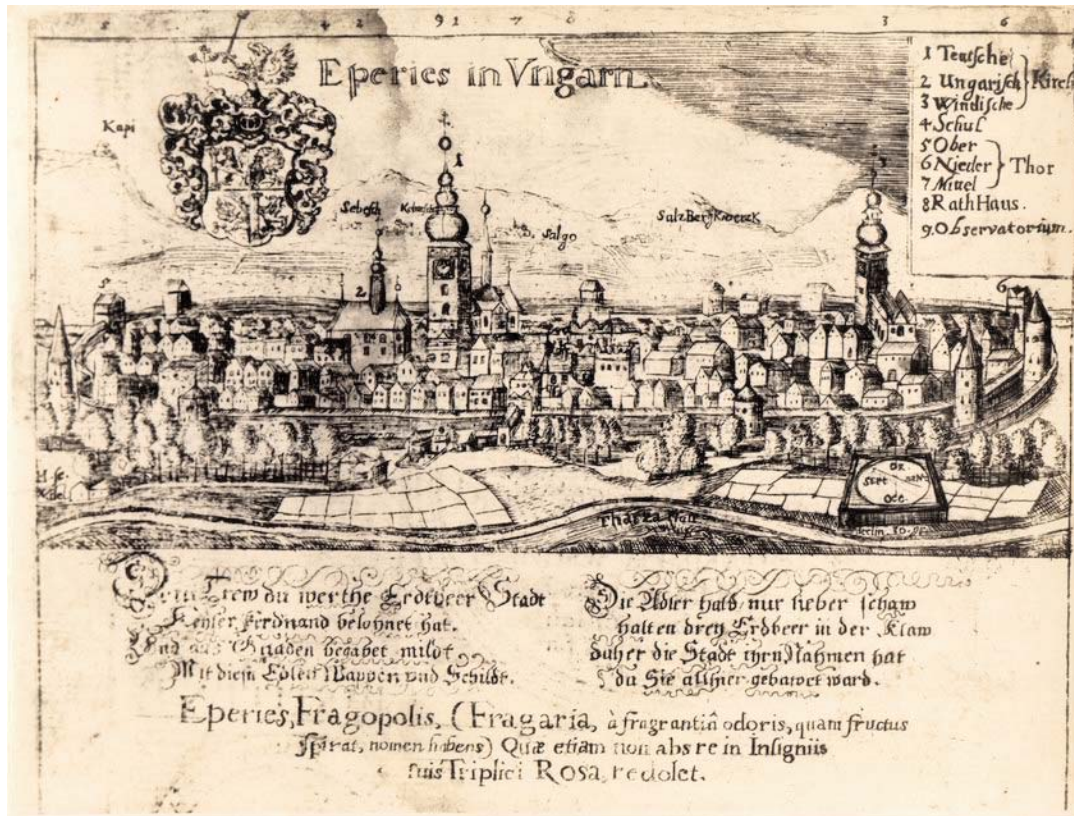 5 4 2 9 1 7 8 3 6
Eperies in Vngarn.
1 Teutsche
2 Ungarisch Kirch
3 Windische
4 Schul
5 Ober
6 Nieder Thor
7 Mittel
8 RathHaus.
9. Observatorium.
Kapi
1
3
Sebesch
Salgo
SalzBerg
2
5
6
Or
Sept
Occ
Tharza
Trew du werthe Erdtbeer Stadt
Keyser Ferdnand belohnet hat.
Vnd aus Gnaden begabet milot
Mit diesn Edlen Wappen vnd Schildt.
Die Adler halb nur lieber schaw
halten drey Erdbeer in der Klaw
daher die Stadt ihrn Nahmen hat
da Sie allhier gebawet ward.
Eperies, Fragopolis, (Fragaria, à fragrantiâ odoris, quam fructus
spirat, nomen habens) Quæ etiam non abs re in Insigniis
suis Triplici Rosa redolet.